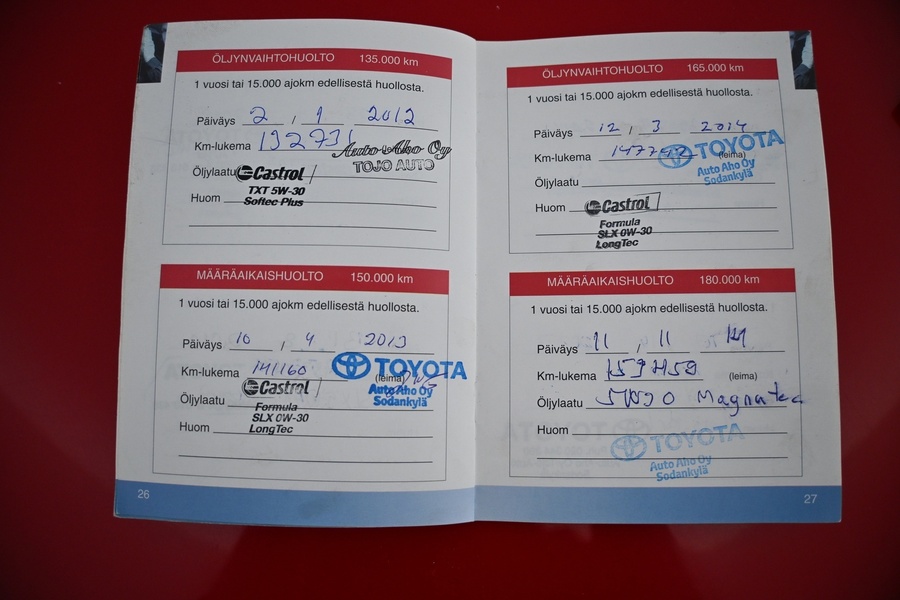 ÖLJYNVAIHTOHUOLTO 135.000 km
1 vuosi tai 15.000 ajokm edellisestä huollosta.
Päiväys 2 / 1 2012
Km-lukema 132731
Auto-Aho Oy
TOJO AUTO
Öljylaatu Castrol
TXT 5W-30
Huom Softec Plus
MÄÄRÄAIKAISHUOLTO 150.000 km
1 vuosi tai 15.000 ajokm edellisestä huollosta.
Päiväys 10 / 4 2013
Km-lukema 141160 (leima)
TOYOTA
Auto Aho Oy
Sodankylä
Öljylaatu Castrol
Formula
SLX 0W-30
Huom LongTec
26
ÖLJYNVAIHTOHUOLTO 165.000 km
1 vuosi tai 15.000 ajokm edellisestä huollosta.
Päiväys 12 / 3 2014
Km-lukema (leima)
TOYOTA
Auto Aho Oy
Sodankylä
Öljylaatu
Huom Castrol
Formula
SLX 0W-30
LongTec
MÄÄRÄAIKAISHUOLTO 180.000 km
1 vuosi tai 15.000 ajokm edellisestä huollosta.
Päiväys 11 / 11 14
Km-lukema (leima)
Öljylaatu 5W30 Magnatec
Huom
TOYOTA
Auto Aho Oy
Sodankylä
27